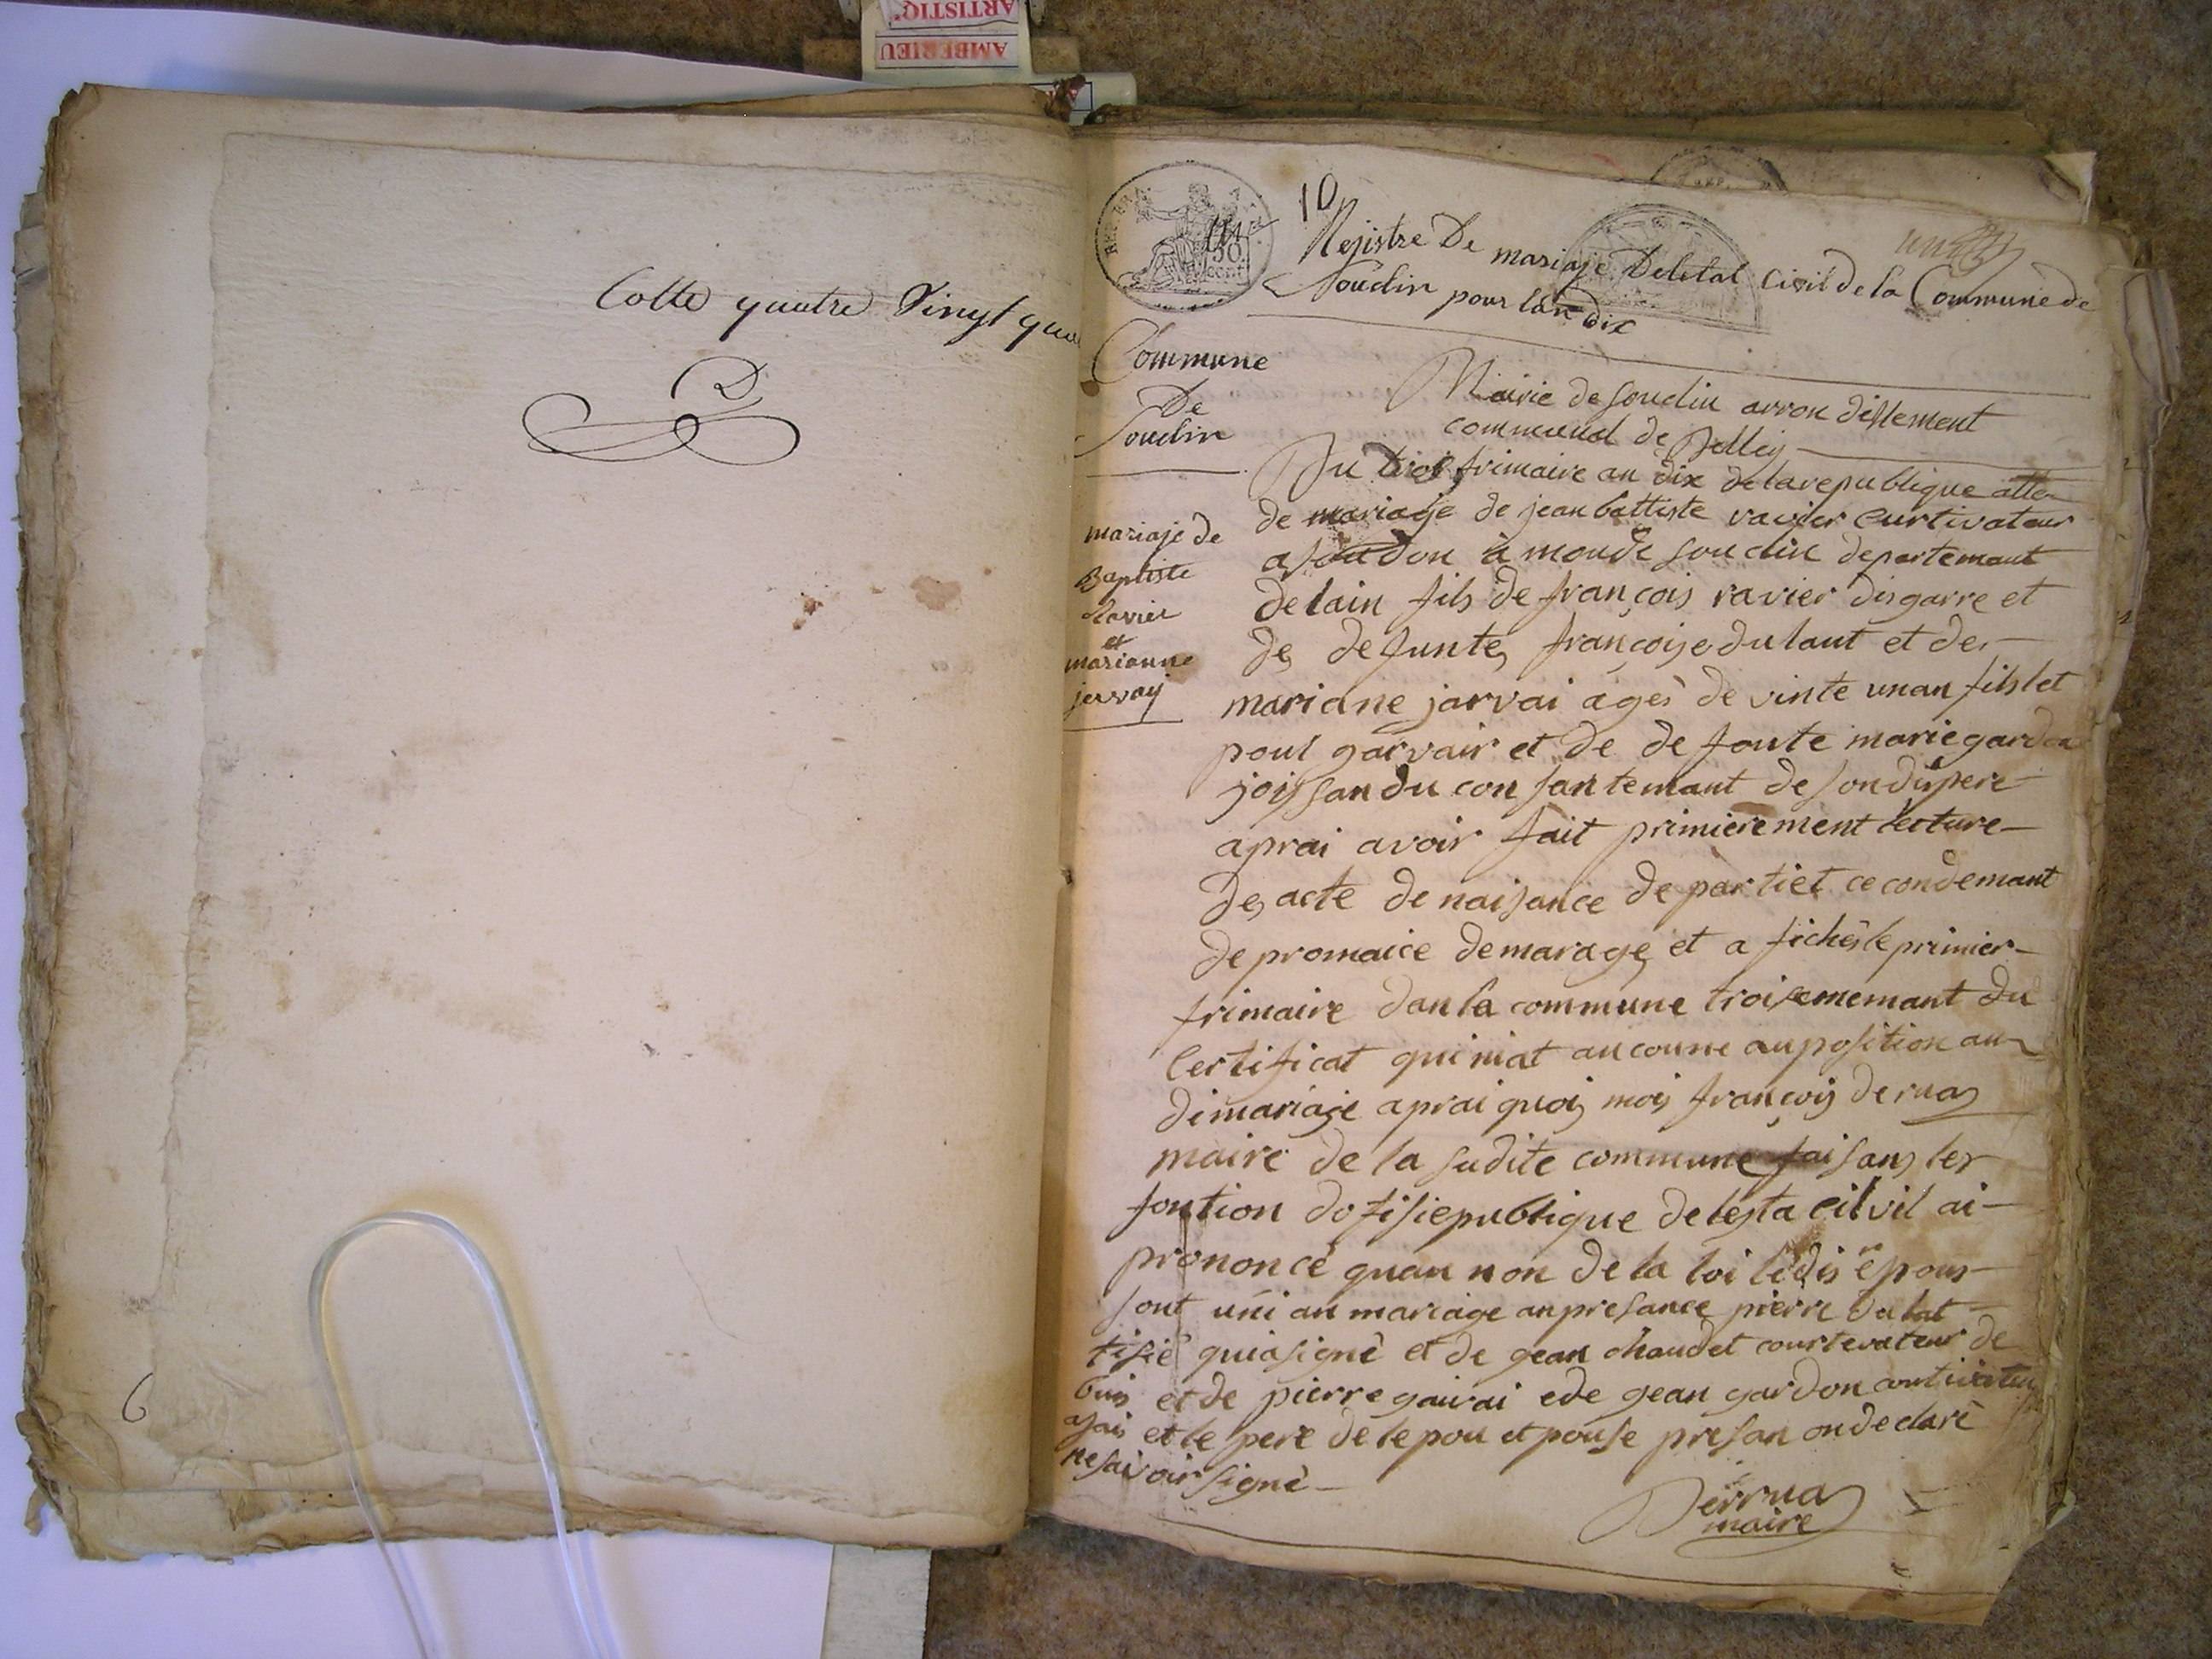 ARTISTIQ'
AMBERIEU
Cotte quatre Vingt qua
6
REP. FRA
50
cent
10
Rejistre De mariaje Deletat Civil de la Commune de
Soudin pour lan Dix
Commune
De
Soudin
mariaje de
Baptiste
Ravier
et
marianne
jervay
Mairie de Soudin arron dissement
communal de Belley
Du trois frimaire an dix de la republique atte
de mariage de jean battiste ravier Curtivateur
a soudon à monde soudin departemant
de lain fils de françois ravier disgarre et
de defunte françoise dulaut et de
mariane jarvai agés de vinte un an fihlet
poul garvair et de de founte marie gardon
joissan du consantemant de son dis pere
aprai avoir fait primierement lecture
des acte de naisance de partiet cecondemant
de promaice demarage et a fichés le primier
frimaire dan la commune troisememant du
Certificat qui niat aucoune auposition au
dimariaje aprai quois mois françois deruas
maire de la sudite commune faisans les
fontion dofisie publique de lesta cilvil ai
prononcé quau non de la loi ledis épous
sont uni an mariage an presance pierre dulat
fisié qui a signè et de gean chaudet courtevateur de
buis et de pierre gairai ede gean gardon curtivateur
asais et le pere de lepou et pouse presan on declarè
ne saivoir signè
Derruas
maire